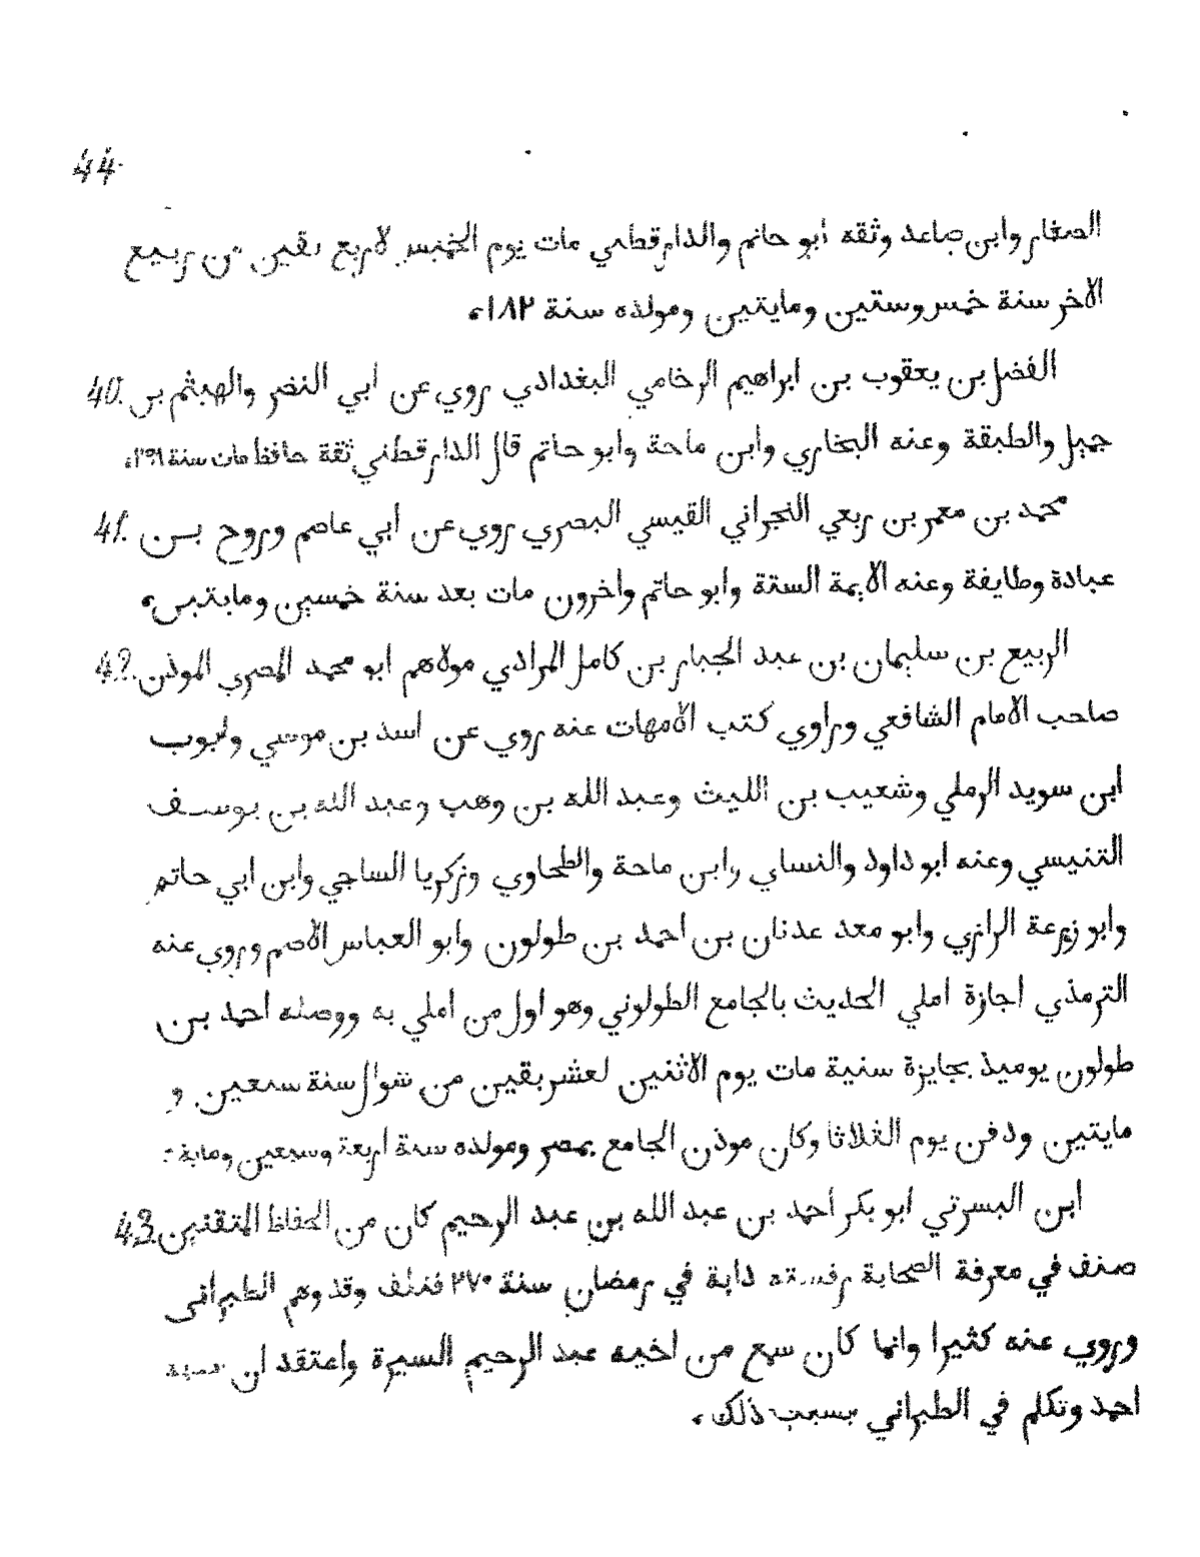 44
الصغار وابن صاعد وثقه ابو حاتم والدارقطني مات يوم الخميس لاربع بقين من ربيع
الاخر سنة خمس وستين ومايتين ومولده سنة ١٨٢،
40. الفضل بن يعقوب بن ابراهيم الرخامي البغدادي روي عن ابي النضر والهيثم بن
جميل والطبقة وعنه البخاري وابن ماحة وابو حاتم قال الدارقطني ثقة حافظ مات سنة
41. محمد بن معمر بن ربعي النجراني القيسي البصري روي عن ابي عاصم وروح بن
عبادة وطايفة وعنه الايمة الستة وابو حاتم واخرون مات بعد سنة خمسين ومايتين،
42. الربيع بن سليمان بن عبد الجبار بن كامل المرادي مولاهم ابو محمد المصري الموذن
صاحب الامام الشافعي وراوي كتب الامهات عنه روي عن اسد بن موسي وايوب
ابن سويد الرملي وشعيب بن الليث وعبد الله بن وهب وعبد الله بن يوسف
التنيسي وعنه ابو داود والنساي وابن ماحة والطحاوي وزكريا الساجي وابن ابي حاتم
وابو زرعة الرازي وابو معد عدنان بن احمد بن طولون وابو العباس الاصم وروي عنه
الترمذي اجازة املي الحديث بالجامع الطولوني وهو اول من املي به ووصله احمد بن
طولون يوميذ بجايزة سنية مات يوم الاثنين لعشر بقين من شوال سنة سبعين و
مايتين ودفن يوم الثلاثا وكان موذن الجامع بمصر ومولده سنة اربعة وسبعين وماية
43. ابن البسرتي ابو بكر احمد بن عبد الله بن عبد الرحيم كان من الحفاظ المتقنين
صنف في معرفة الصحابة رفسته دابة في رمضان سنة ٢٧٠ فتلف وقد وهم الطبراني
وروي عنه كثيرا وانما كان سمع من اخيه عبد الرحيم السيرة واعتقد ان
احمد وتكلم في الطبراني بسبب ذلك،